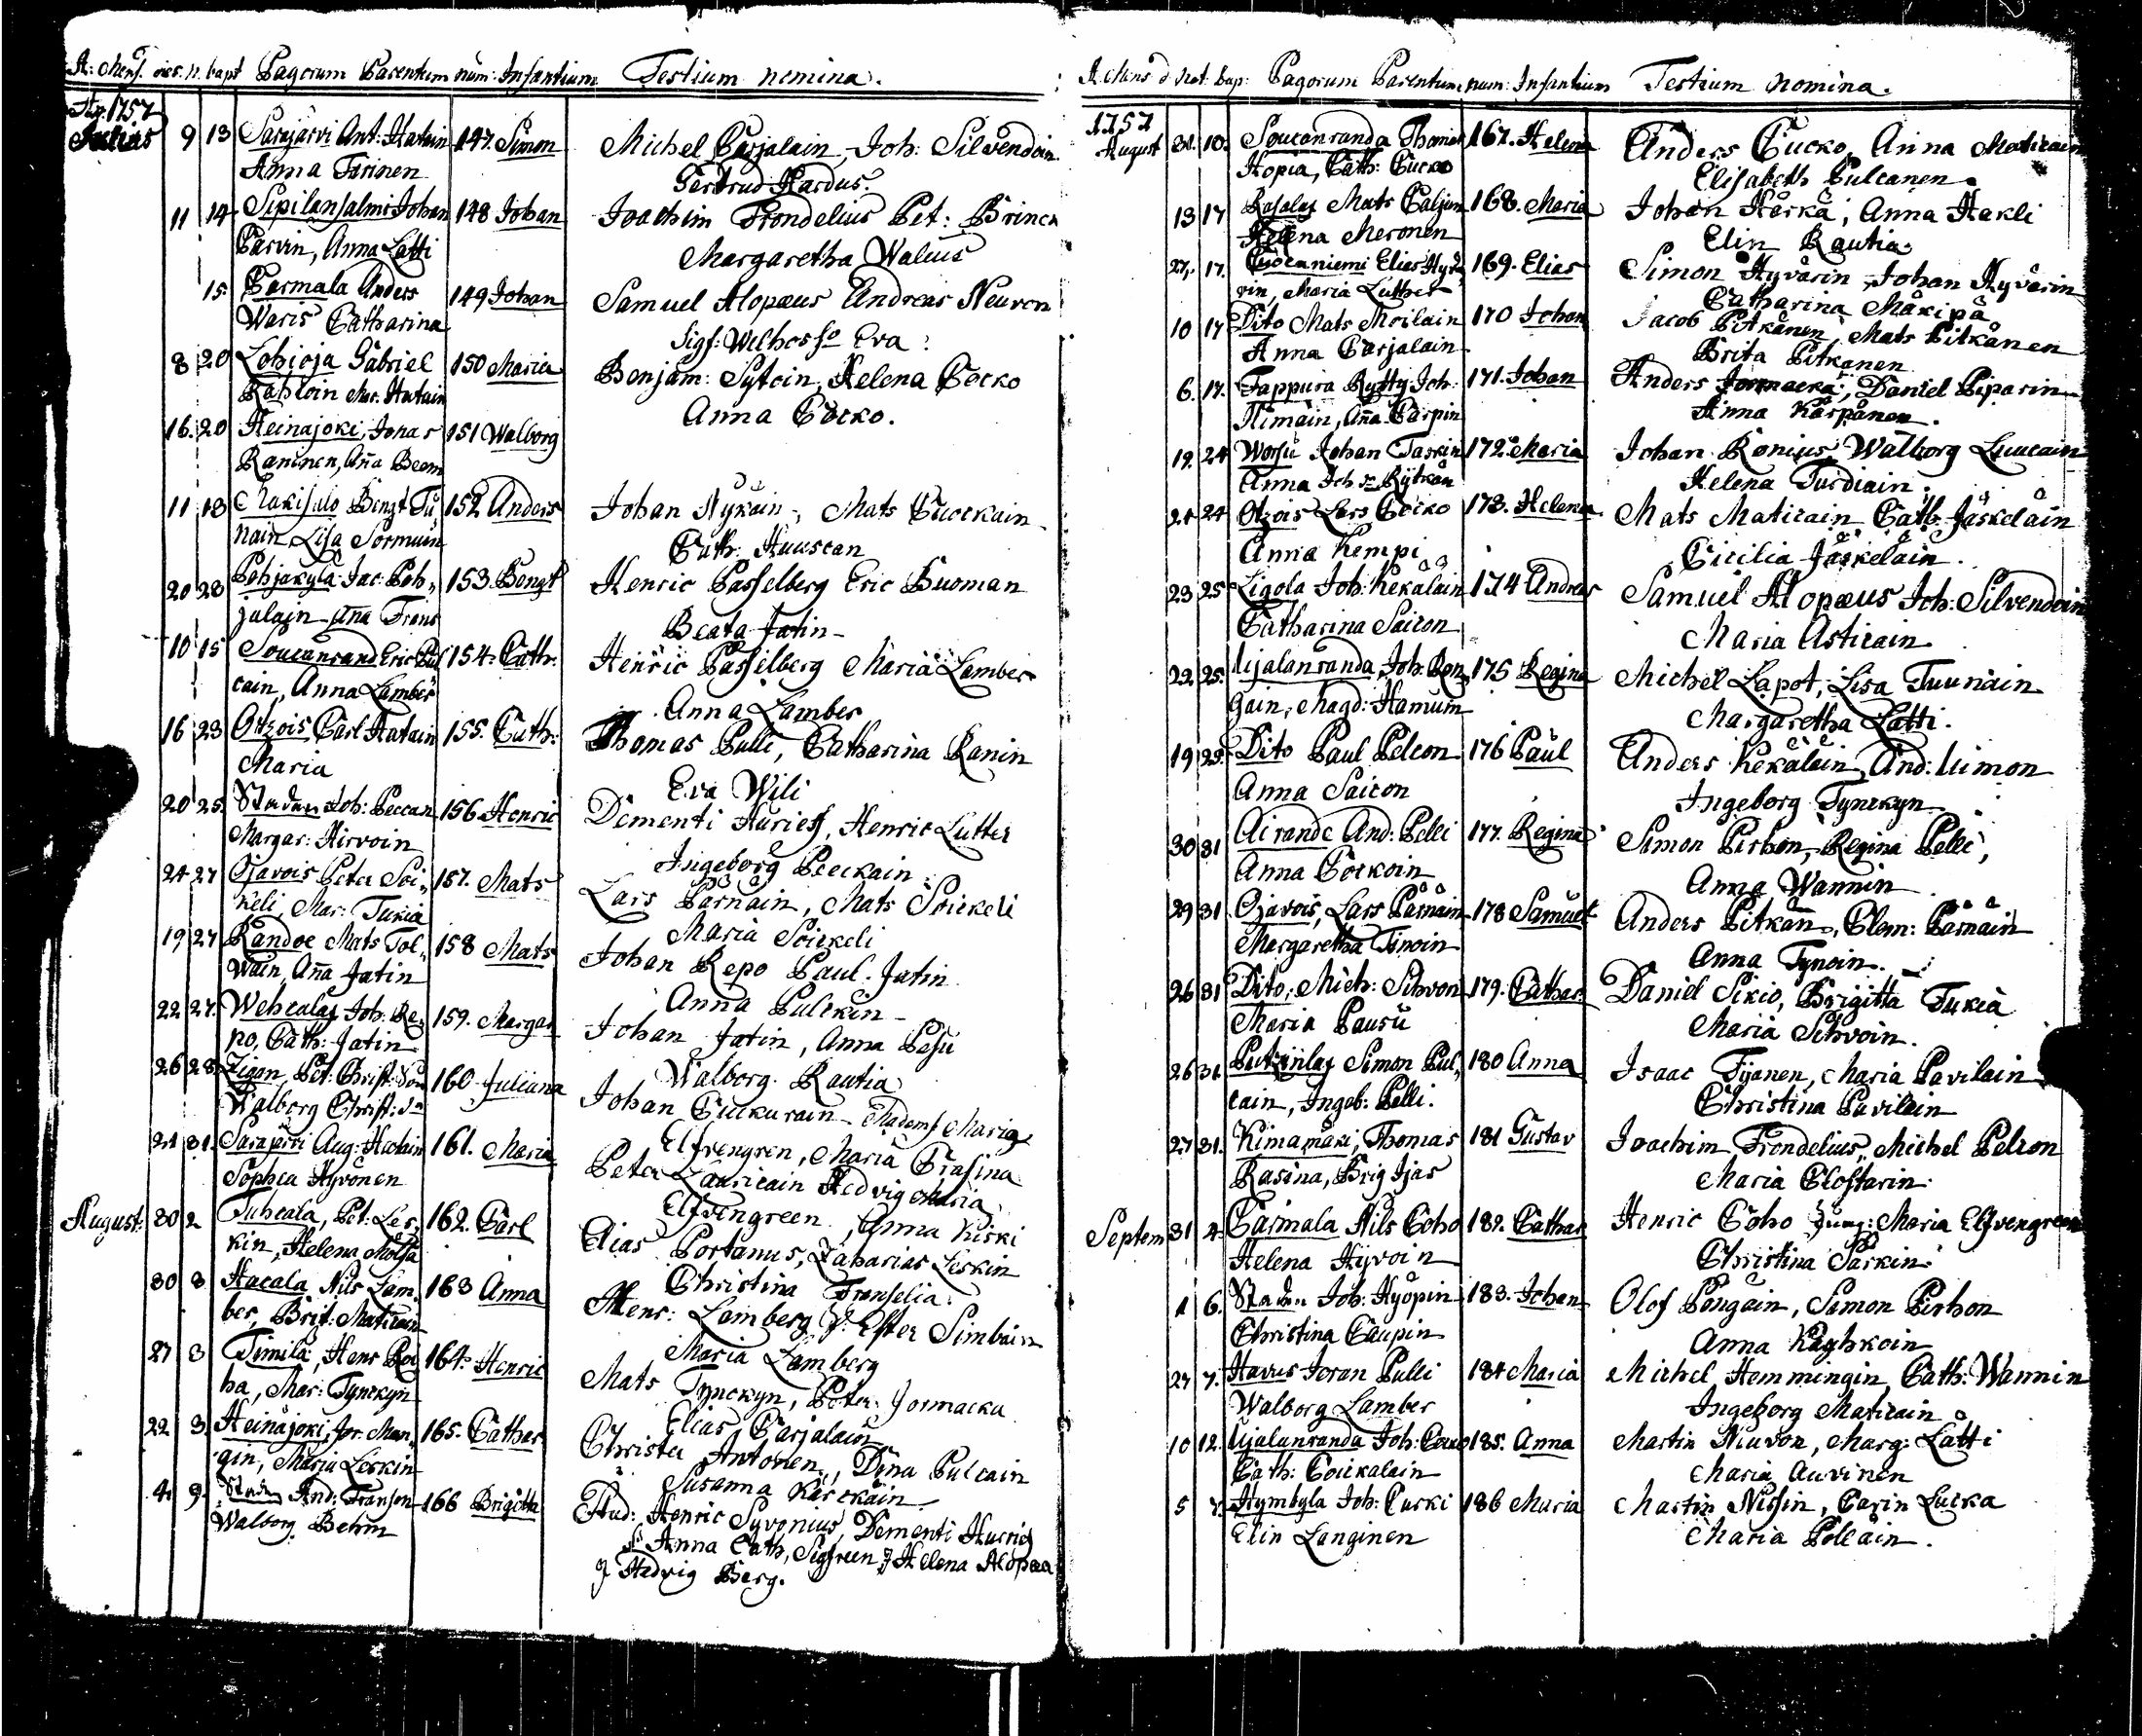 A: Mens. nas. n. bapt Pagorum Parentum num: Infantium Testium nomina.
1757
Julius 9 13 Sarajärvi Ant: Hatain 147. Simon Michel Carjalain, Joh: Silvendoin
Anna Tirinen Gertrud Hardus.
11 14 Sipilansalmi Johan 148 Johan Joachim Frondelius Pet: Brinck
Parvin, Anna Latti Margaretha Walius
15. Carmala Anders 149 Johan Samuel Alopæus Andreas Neuvon
Waris Catharina Sigf: Eva
8 20 Lohioja Gabriel 150 Maria Benjam: Sytoin, Helena Cocko
Mar. Hatain Anna Cocko.
16. 20 Heinajoki, Jonas 151 Walborg
Raninen, Aña
11 18 Bengt Tu 152 Anders Johan Nykäin, Mats
nain, Lisa Sormuin Cath: Huuscan
20 28 Pohjakyla Jac: Poh 153. Bengt Henric Passelberg Eric Buoman
julain Aña Beata Jatin
10 15 Soucanrand Eric Pul 154. Cath: Henric Passelberg Maria Lamber
cain, Anna Lamber Anna Lamber
16 23 Otzois, Carl Hatain 155. Cath: Thomas Pulli, Catharina Ranin
Maria Eva Wili
20 25 Staden Joh: Peccan 156. Henric Dementi Hurieff, Henric Lutter
Margar: Hirvoin Ingeborg Peeckain
24 27 Ojavois Peter Soi 157. Mats Lars Pärnäin, Mats Soickeli
keli, Mar: Tukia Maria Soickeli
19 27 Randoe Mats Tol 158 Mats Johan Repo Paul. Jatin
wain, Aña Jatin Anna Pulckin
22 27. Wehcalax Joh: Re 159. Margar Johan Jatin, Anna Pesu
po, Cath: Jatin Walborg Rautia
26 28 Zigon Pet: Christ: Son 160 Juliana Johan Cuckurain Madems Maria
Walborg Christ: Elfvengren, Maria Crasina
21 31. Sarajärvi Aug: Hatain 161. Maria Peter Lauricain Hedvig Maria
Sophia Hyvönen Elfvengreen, Anna Kiski
August: 30 2 Tuhcala, Pet: Les 162. Carl Elias Portanus, Zacharias Leskin
kin, Helena Mölsä Christina Franselia
30 3 Hacala Nils Lam 163 Anna Hens: Lamberg Ester Simbain
ber, Brit: Maticain Maria Lamberg
27 3 Timila, Hens Roi 164. Henric Mats Tynckyn, Peter Jormacka
ha, Mar: Tynckyn Elias Carjalain
22 3. Heinäjoki, Jor. Man 165. Cathar Christer Antonen, Dina Pulcain
gin, Maria Leskin Susanna Käickäin
4. 9. Staden And: Franson 166 Brigitta Stud: Henric Syvonius, Dementi Hurieff
Walborg Behm Anna Cath, Sigfreen, Helena Alopæa
Hedvig Berg.
A Mens d Nat: bap: Pagorum Parentum num: Infantium Testium nomina.
1757
August 31. 10. Soucanranda Thomas 167. Helena Anders Cucko, Anna Maticain
Hopia, Cath: Cucko Elisabeth Pulcanen.
13 17 Mats Paljain 168. Maria Johan Härkä, Anna Hakli
Helena Meronen Elin Rautia
27. 17. Cuocaniemi Elias Hyvä 169. Elias Simon Hyvärin, Johan Hyvärin
rin, Maria Luther Catharina Mäkipä
10 17 Dito Mats Moilain 170 Johan Jacob Pitkänen, Mats Pitkänen
Anna Carjalain Brita Pitkanen
6. 17. Tappura Rytty Joh: 171. Johan Anders Jormacka, Daniel Piparin
Nimäin, Aña Carpin Anna Kärpänen.
19. 24 Worsu Johan Taskin 172. Maria Johan Ronius, Walborg Luucain
Anna Joh Rytkän Helena Turdiain.
24 24 Otzois Lars Cocko 173. Helena Mats Maticain Cath: Jäskeläin
Anna Kempi Cicilia Jäskeläin.
23 25 Ligola Joh: Kekäläin 174 Andreas Samuel Alopæus Joh: Silvendoin
Catharina Saicon Maria Asticain
22. 25. Ujalanranda Joh: Ron 175 Regina Michel Lapot, Lisa Tuunäin
gain, Magd: Hamuin Margaretha Latti.
19 29 Dito Paul Pelcon 176 Paul Anders Kekäläin, And: Uimon
Anna Saicon Ingeborg Tynckyn
30 31 Airande And: Pelli 177. Regina Simon Pirhon, Regina Pelli,
Anna Cockoin Anna Wannin
29 31. Ojavois, Lars Pärnäin 178 Samuel Anders Pitkän, Clem: Pärnäin
Margaretha Tinoin Anna Tynoin.
26 31 Dito, Mich: Sihvon 179. Cathar Daniel Sikiö, Brigitta Tukia
Maria Pauru Maria Sihvoin.
26 31. Simon Pul 180 Anna Isaac Tijanen, Maria Pavilain
cain, Ingeb: Pelli. Christina Pavilain
27 31. Kimamäki, Thomas 181 Gustav Joachim Frondelius, Michel Pelcon
Rasina, Brig Ijas Maria Clostarin
Septem 31 4. Carmala Nils Coho 182. Cathar Henric Coho Jung: Maria Elfvengreen
Helena Hyvoin Christina Parkin
1 6. Staden Joh: Hyöpin 183. Johan Olof Pongain, Simon Pirhon
Christina Caupin Anna Käyhkoin
27 7. Havus Joran Pulli 184 Maria Michel Hemmingin Cath: Wannin
Walborg Lamber Ingeborg Maticain
10 12. Ujalanranda Joh: Cocko 185. Anna Martin Niuvon, Marg: Latti
Cath: Coickalain Maria Auvinen
5 7. Hymbyla Joh: Curki 186 Maria Martin Nissin, Carin Lucka
Elin Langinen Maria Polläin.